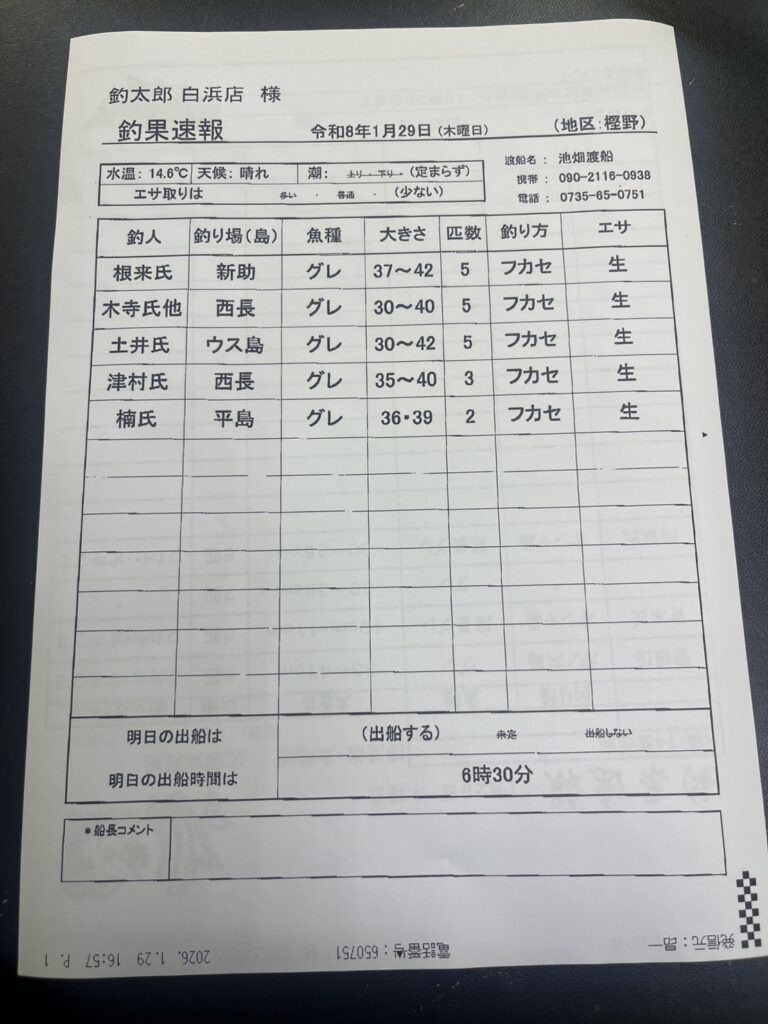 釣太郎 白浜店 様
釣果速報 令和8年1月29日(木曜日) (地区:樫野)
水温: 14.6℃ 天候: 晴れ 潮: 上り・下り・(定まらず)
エサ取りは 多い ・ 普通 ・ (少ない)
渡船名: 池畑渡船
携帯: 090-2116-0938
電話: 0735-65-0751
釣人 釣り場(島) 魚種 大きさ 匹数 釣り方 エサ
根来氏 新助 グレ 37～42 5 フカセ 生
木寺氏他 西長 グレ 30～40 5 フカセ 生
土井氏 ウス島 グレ 30～42 5 フカセ 生
津村氏 西長 グレ 35～40 3 フカセ 生
楠氏 平島 グレ 36・39 2 フカセ 生
明日の出船は (出船する) 未定 出船しない
明日の出船時間は 6時30分
*船長コメント
発信元:昴一 電話番号:650751 2026. 1.29 16:57 P. 1